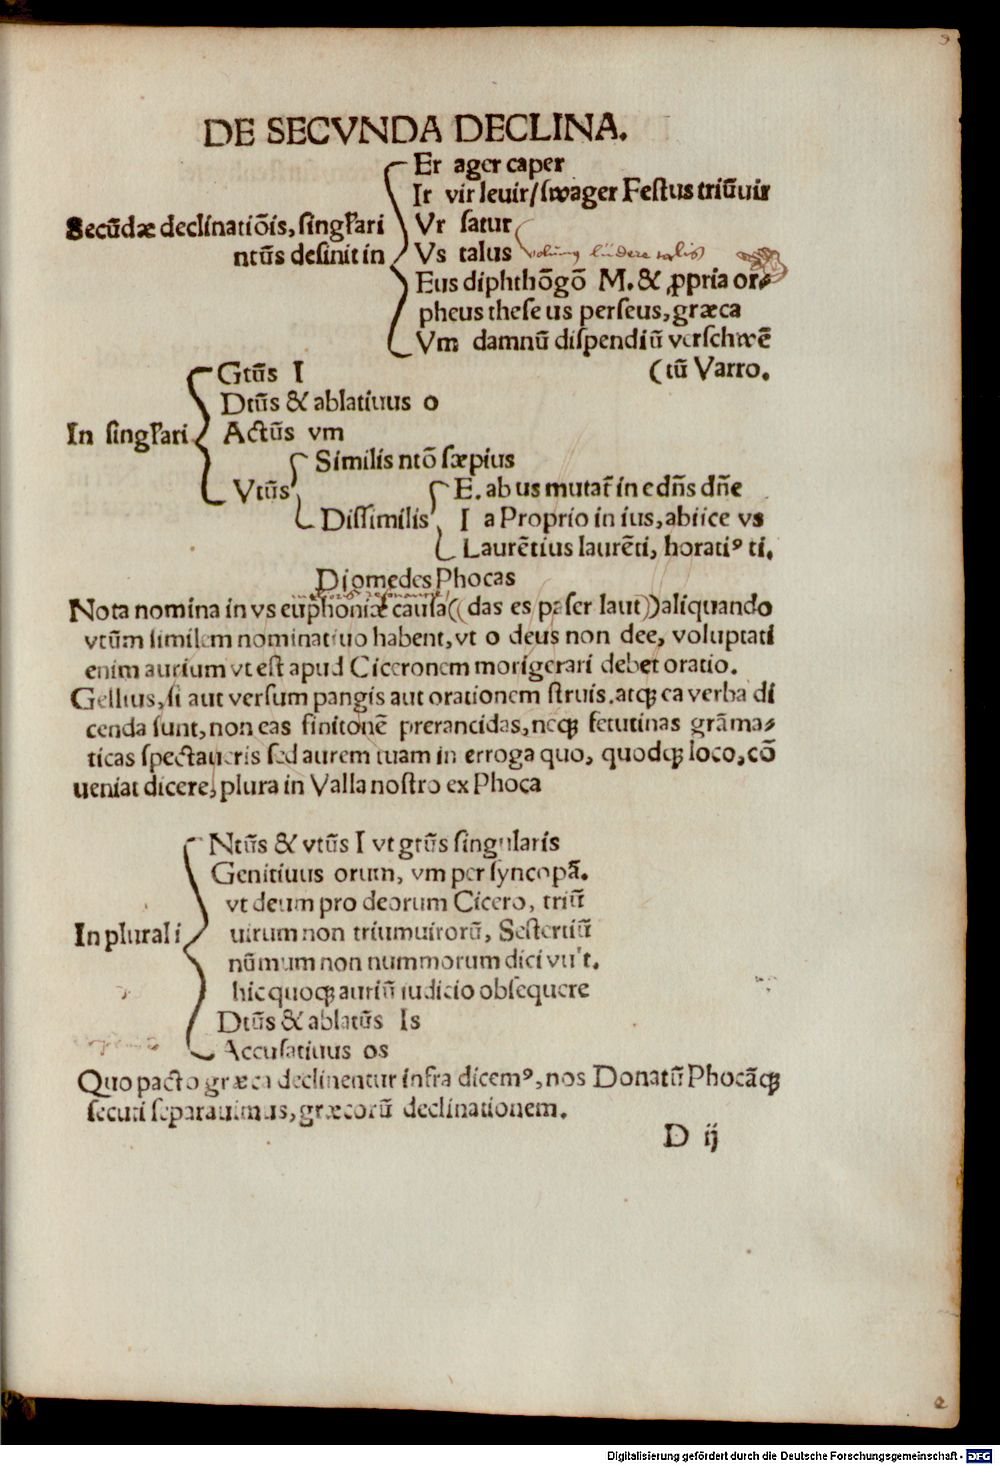 DE SECVNDA DECLINA.
Er ager caper
Ir vir leuir/swager Festus triūuir
Vr satur
Secūdæ declinatiōis, singl'ari
ntūs desinit in
Vs talus
volunt lūdere talis
Eus diphthōgō M. & ꝓpria or-
pheus these us perseus, græca
Vm damnū dispendiū verschwē
(tū Varro.
Gtūs I
Dtūs & ablatiuus o
In singl'ari
Actūs vm
Similis ntō sæpius
Vtūs
E. ab us mutat̄ in e dn̄s dn̄e
Dissimilis
I a Proprio in ius, abiice vs
Laurētius laurēti, horatiꝰ ti.
Diomedes Phocas
Nota nomina in vs euphoniæ causa ((das es paser laut)) aliquando
vtūm similem nominatiuo habent, vt o deus non dee, voluptati
enim aurium vt est apud Ciceronem morigerari debet oratio.
Gellius, si aut versum pangis aut orationem struis. atqꝫ ea verba di
cenda sunt, non eas finitonē prerancidas, neqꝫ fetutinas grāma-
ticas spectaueris sed aurem tuam in erroga quo, quodqꝫ loco, cō
ueniat dicere, plura in Valla nostro ex Phoca
Ntūs & vtūs I vt gtūs singularis
Genitiuus orum, vm per syncopā.
vt deum pro deorum Cicero, triū
In plurali
uirum non triumuirorū, Sestertiū
nūmum non nummorum dici vult.
hic quoqꝫ auriū iudicio obsequere
Dtūs & ablatūs Is
Accusatiuus os
Quo pacto græca declinentur infra dicemꝰ, nos Donatū Phocāqꝫ
secuti separauimus, græcorū declinationem.
D ij
Digitalisierung gefördert durch die Deutsche Forschungsgemeinschaft - DFG